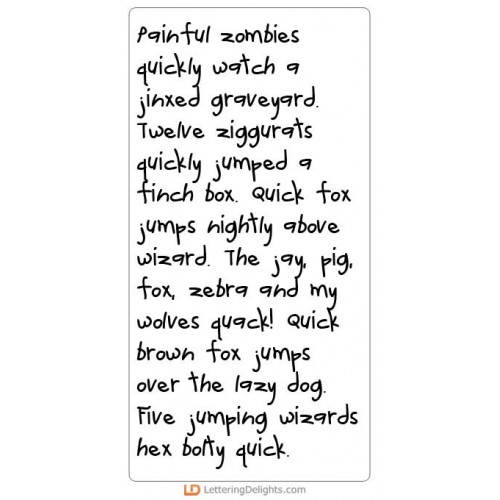 Painful zombies
quickly watch a
jinxed graveyard.
Twelve ziggurats
quickly jumped a
finch box. Quick fox
jumps nightly above
wizard. The jay, pig,
fox, zebra and my
wolves quack! Quick
brown fox jumps
over the lazy dog.
Five jumping wizards
hex bolty quick.
LD LetteringDelights.com